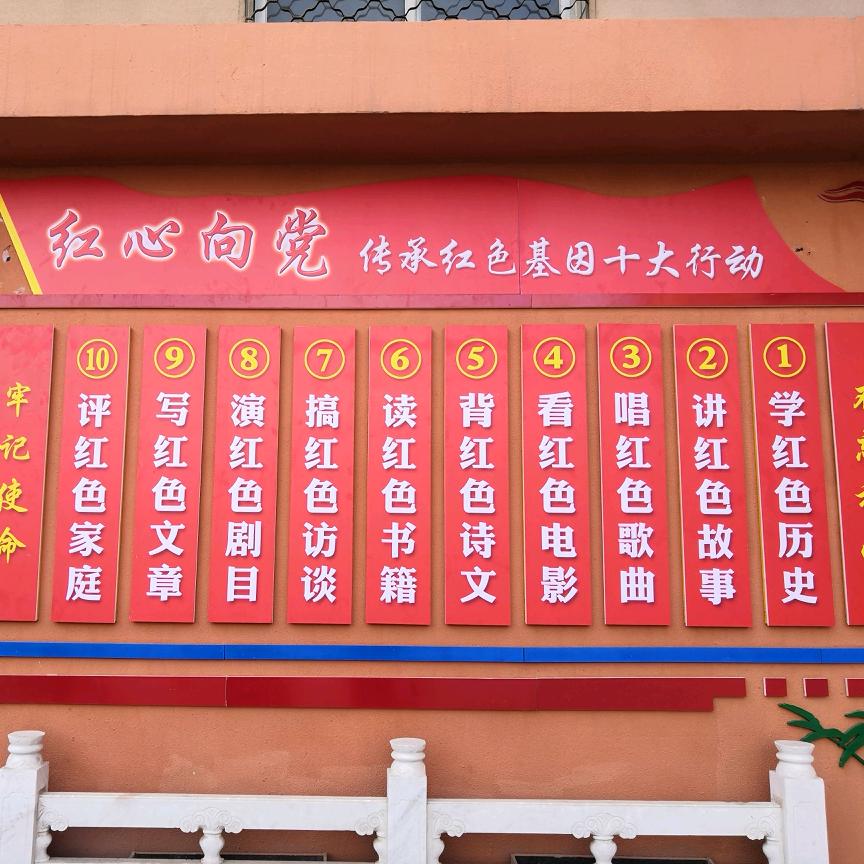 红心向党 传承红色基因十大行动
①学红色历史
②讲红色故事
③唱红色歌曲
④看红色电影
⑤背红色诗文
⑥读红色书籍
⑦搞红色访谈
⑧演红色剧目
⑨写红色文章
⑩评红色家庭
牢记使命